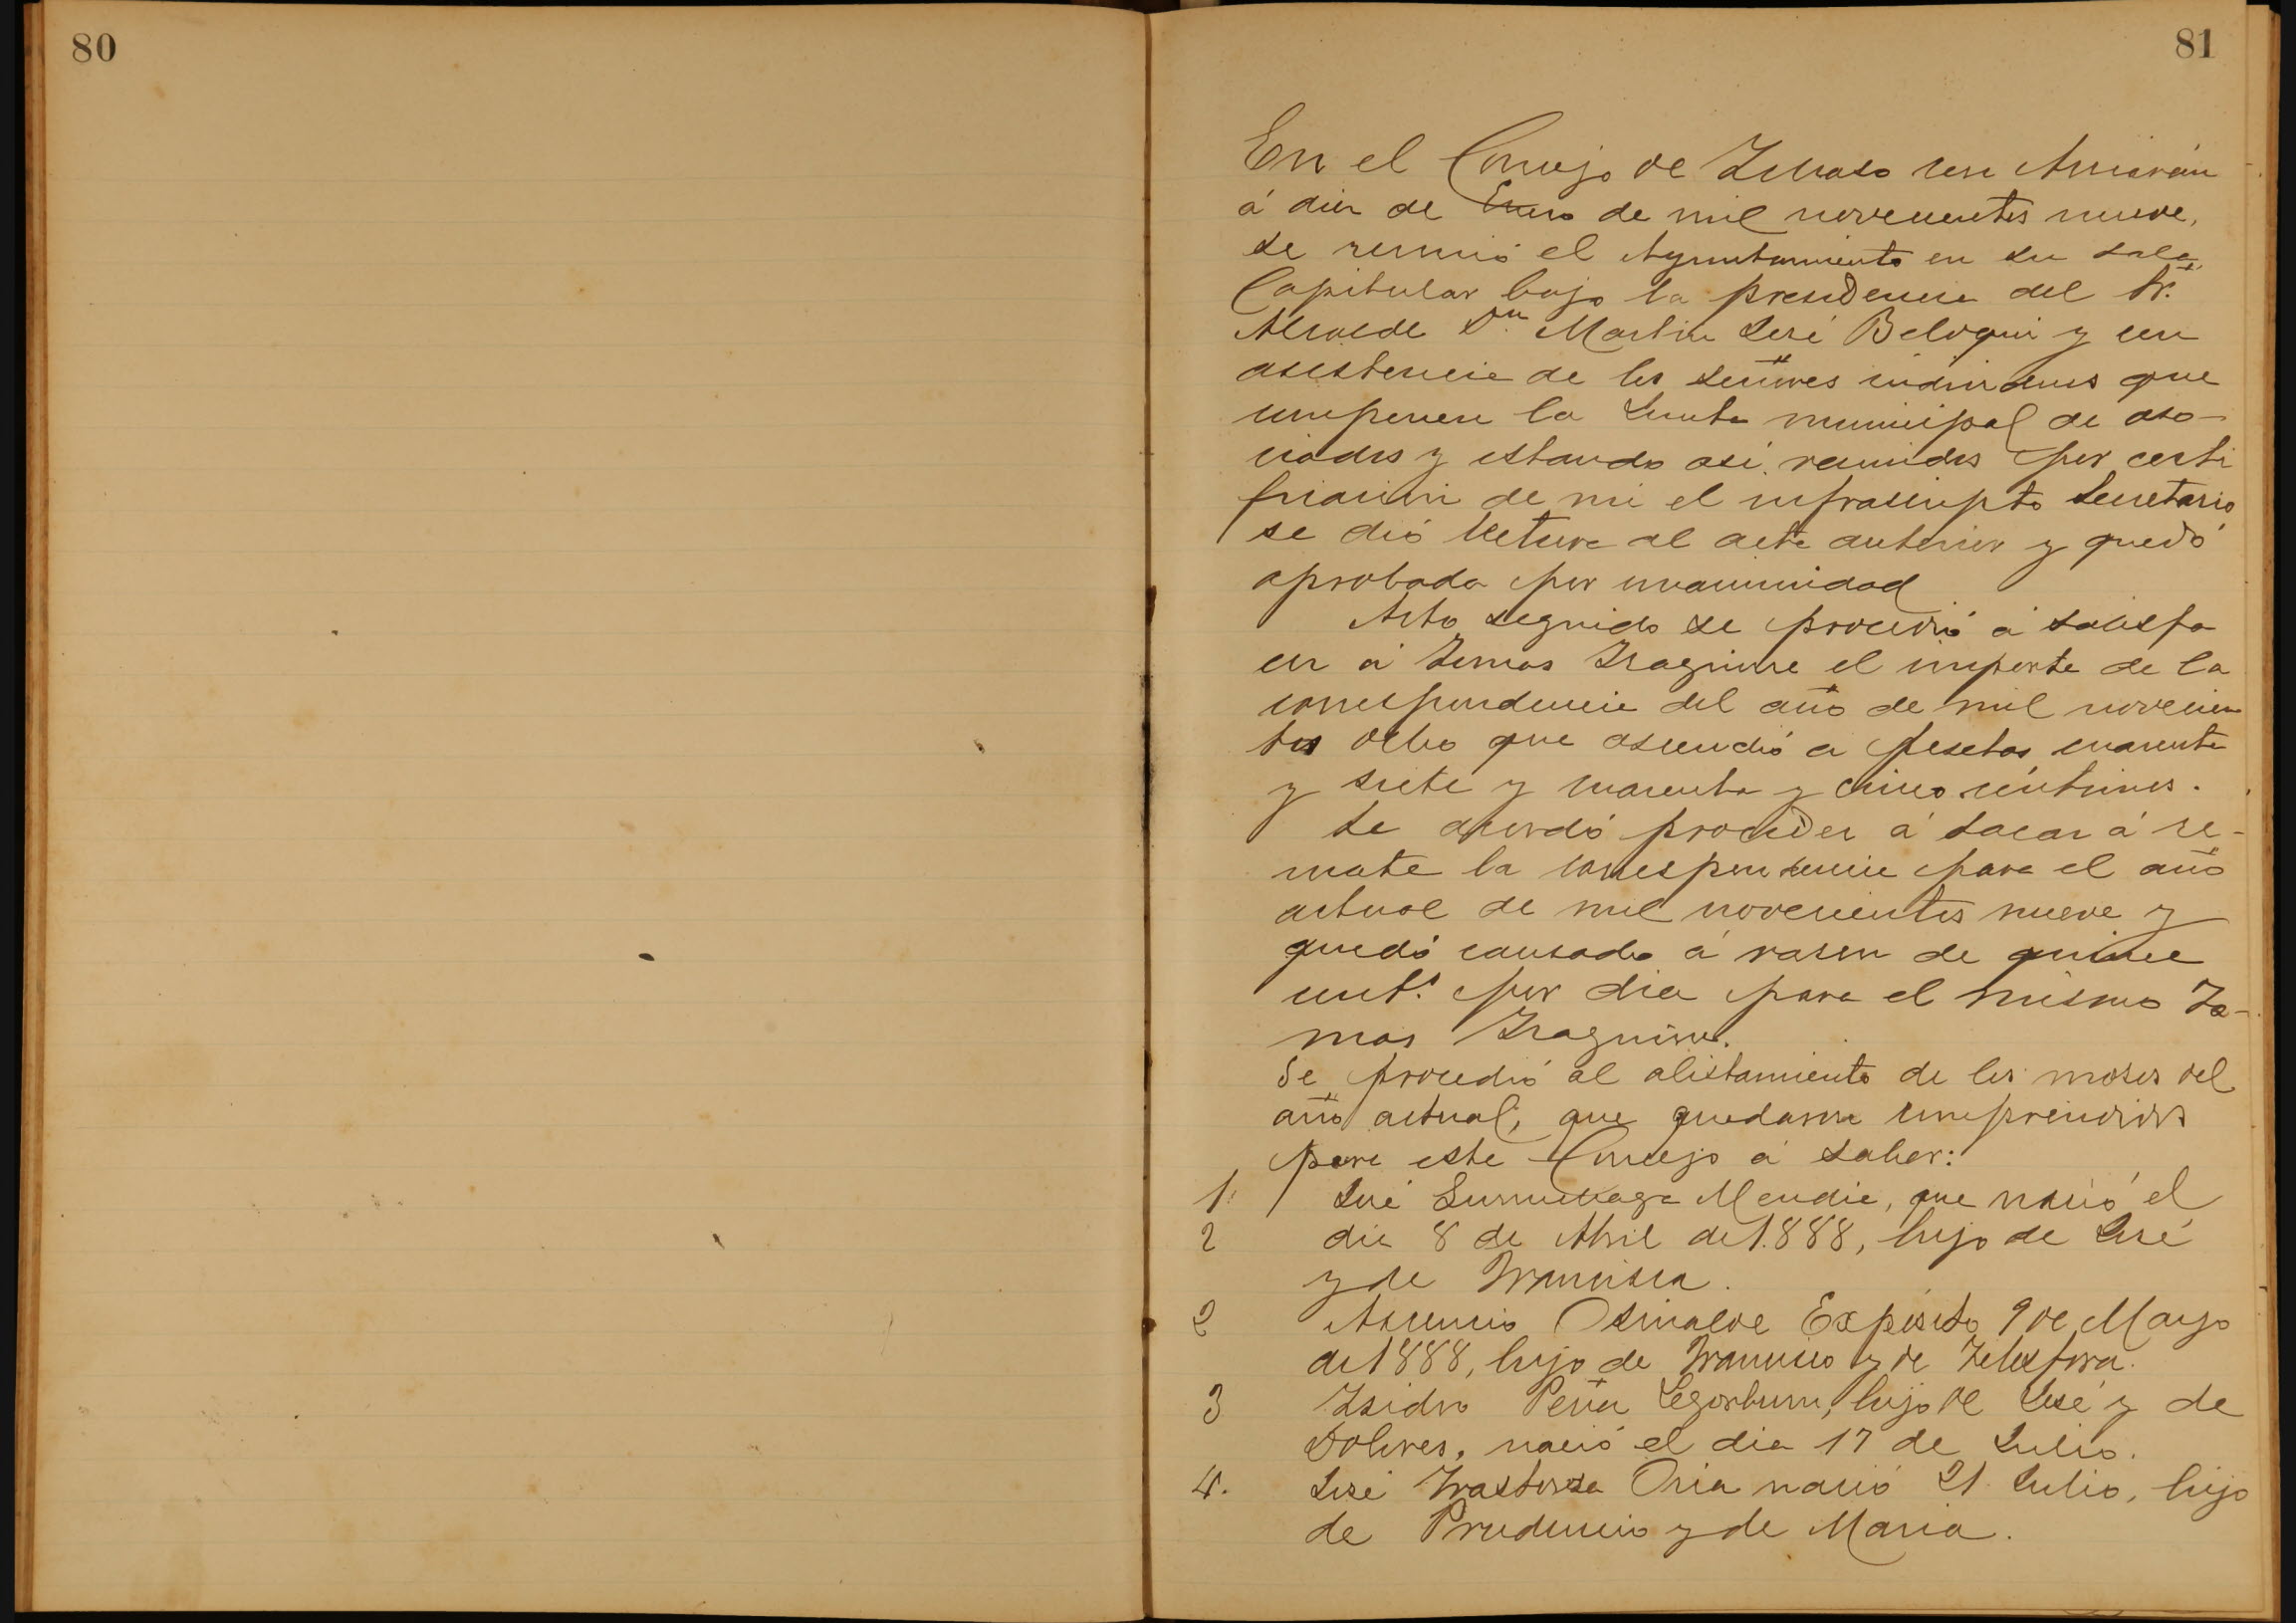 80
81
En el Concejo de Ichaso con Arriarán
á diez de Enero de mil novecientos nueve,
se reunió el Ayuntamiento en su sala
Capitular bajo la presidencia del Sr.
Alcalde Dn. Martin José Beloqui y con
asistencia de los señores individuos que
componen la Junta municipal de aso-
ciados y estando asi reunidos por certi
ficación de mi el infrascripto Secretario
se dió lectura al acta anterior y quedó
aprobada por unanimidad
Acto seguido se procedió á satisfa
cer á Tomas Izaguirre el importe de la
correspondencia del año de mil novecien
tos ocho que ascendió a pesetas cuarenta
y siete y cuarenta y cinco céntimos.
Se acordó proceder á sacar á re-
mate la correspondencia para el año
actual de mil novecientos nueve y
quedó causado á rason de quince
cent.s por dia para el mismo To-
mas Izaguirre.
Se procedió al alistamiento de los mosos del
año actual, que quedaron comprendidos
para este Concejo á saber:
1. José Mendia, que nació el
2 dia 8 de Abril de 1.888, hijo de José
y de Francisca.
2 Ascencio Osinalde Expósito 9 de Mayo
de 1888, hijo de Francisco y de Telesfora.
3 Isidro Peña Legorburu, hijo de José y de
Dolores, nació el dia 17 de Julio.
4. José Oria nació 21 Julio, hijo
de Prudencio y de Maria.